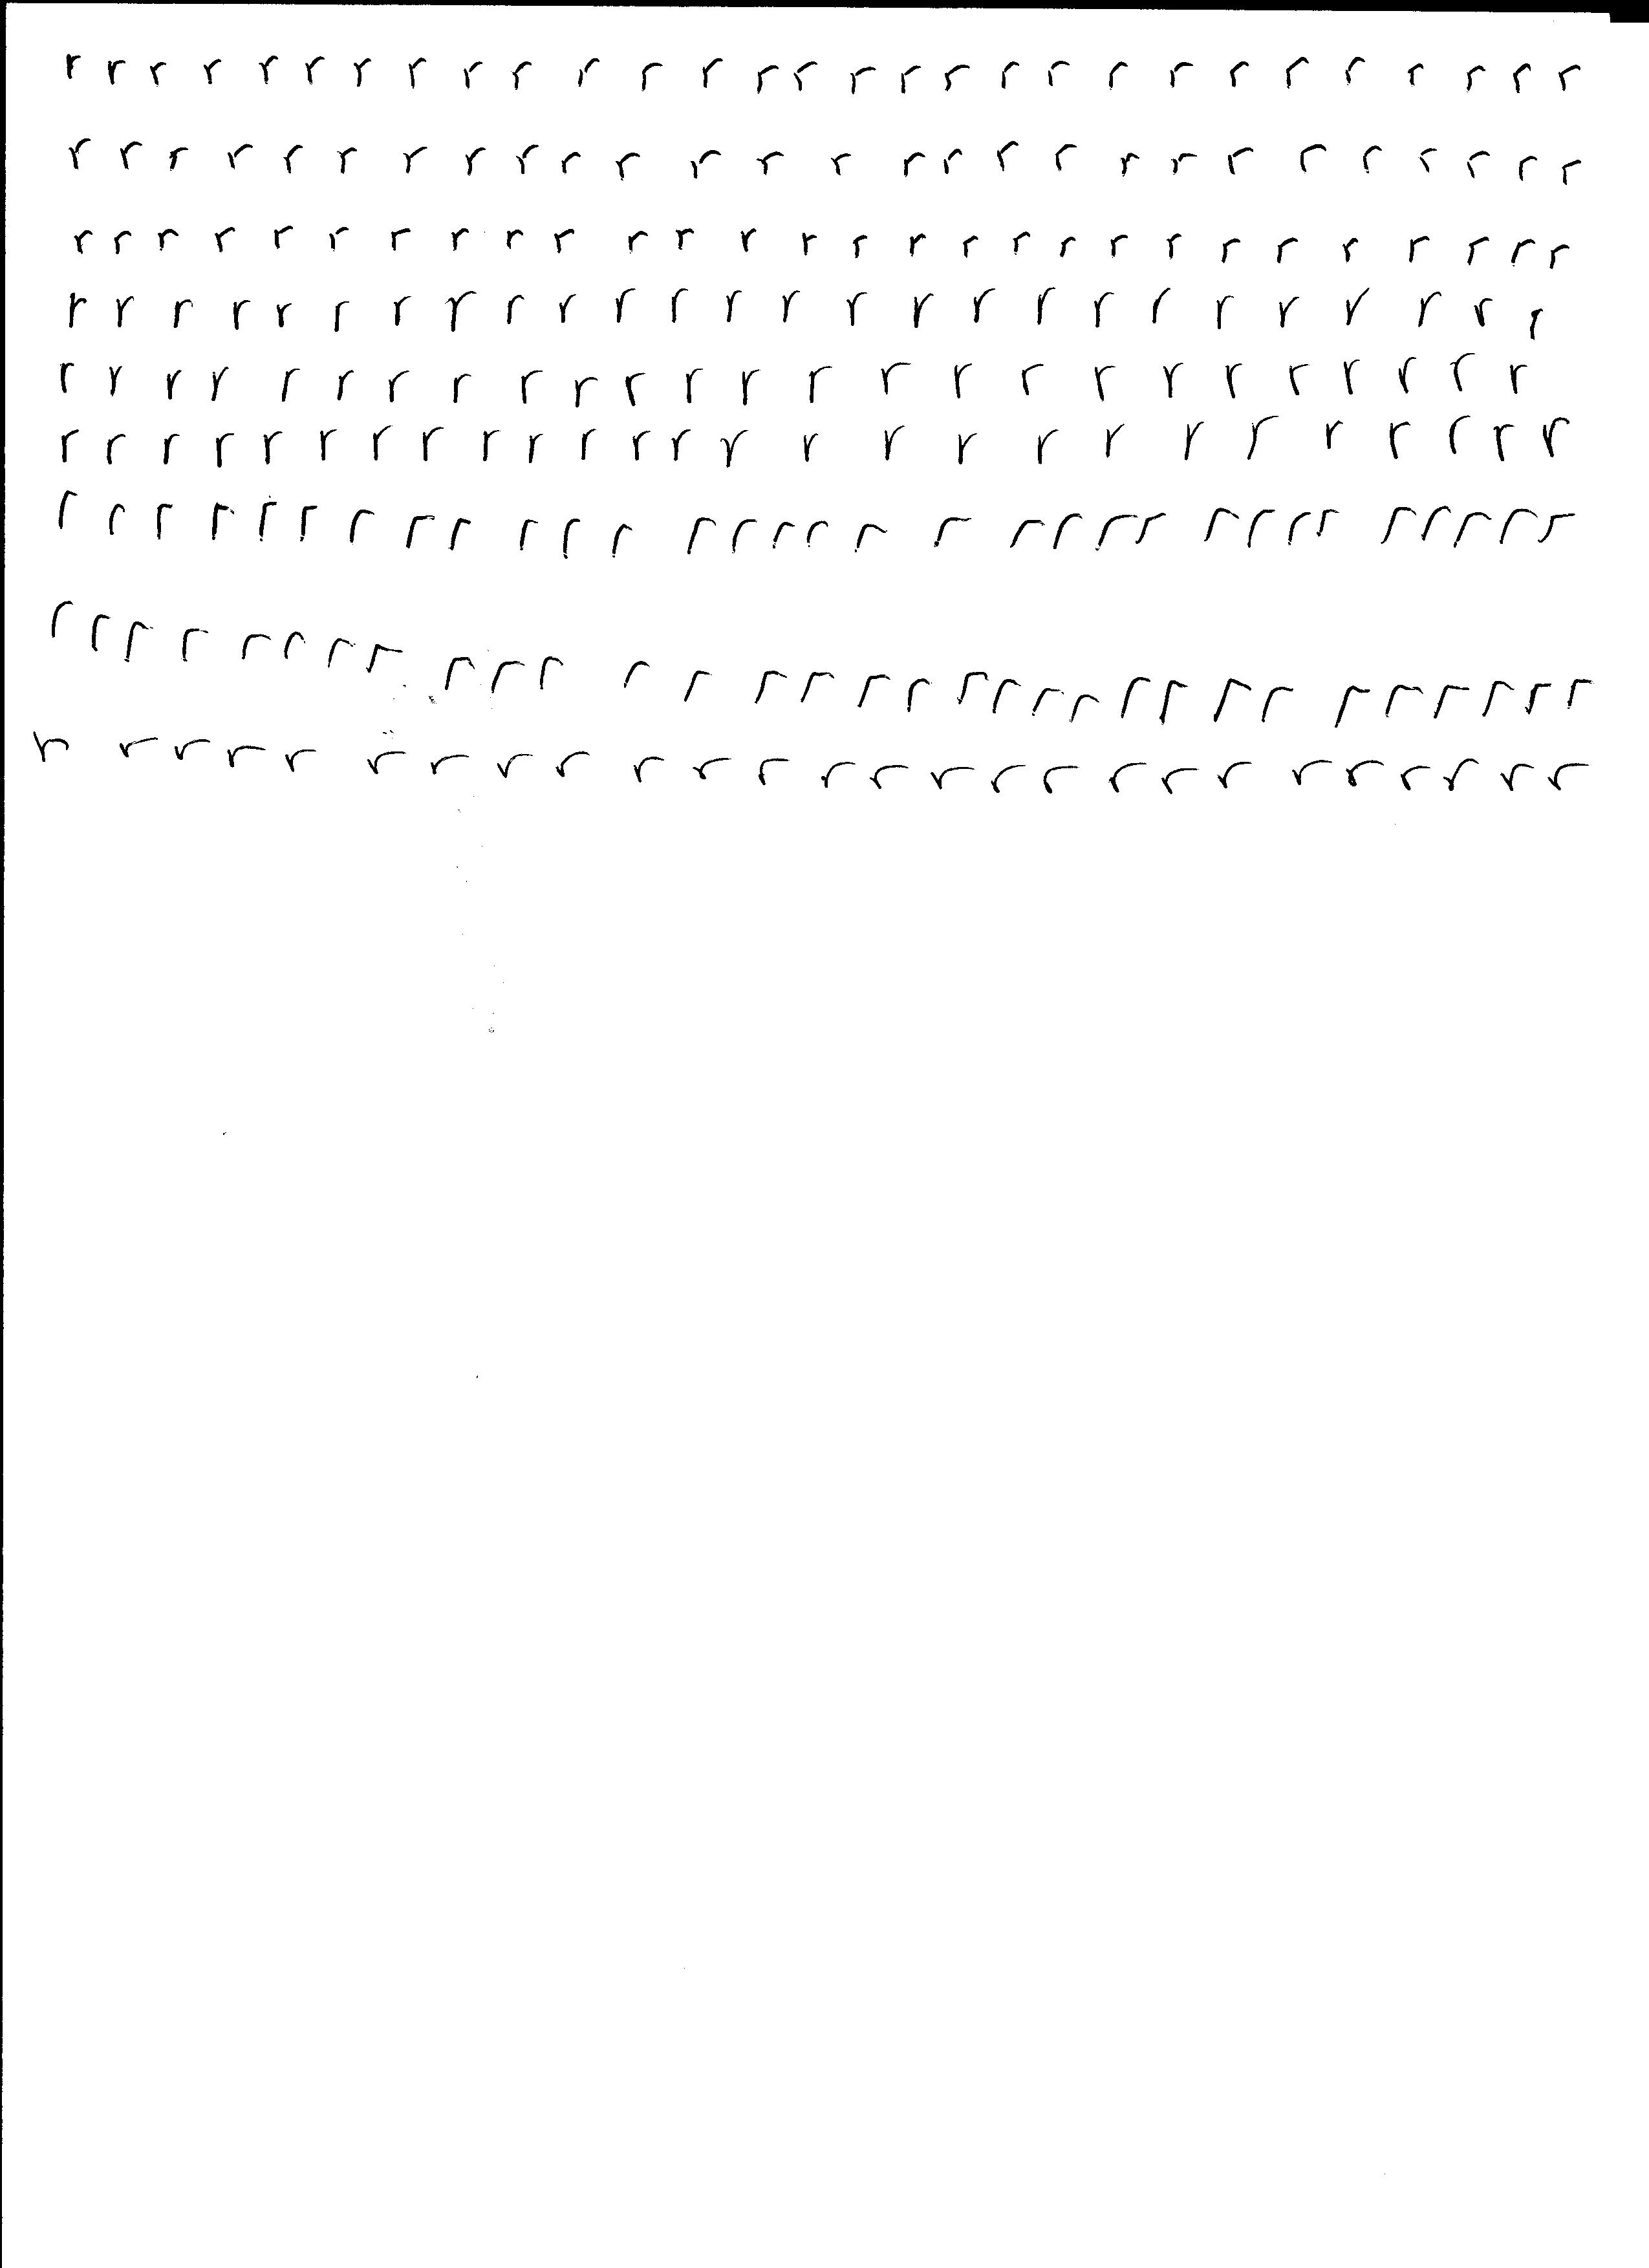 r r r r r r r r r r r r r r r r r r r r r r r r r r r r r
r r r r r r r r r r r r r r r r r r r r r r r r r r r
r r r r r r r r r r r r r r r r r r r r r r r r r r r r
r r r r r r r r r r r r r r r r r r r r r r r r r r
r r r r r r r r r r r r r r r r r r r r r r r r r
r r r r r r r r r r r r r r r r r r r r r r r r r r
r r r r r r r r r r r r r r r r r r r r r r r r r r r r r r r
r r r r r r r r r r r r r r r r r r r r r r r r r r r r r r r
r r r r r r r r r r r r r r r r r r r r r r r r r r